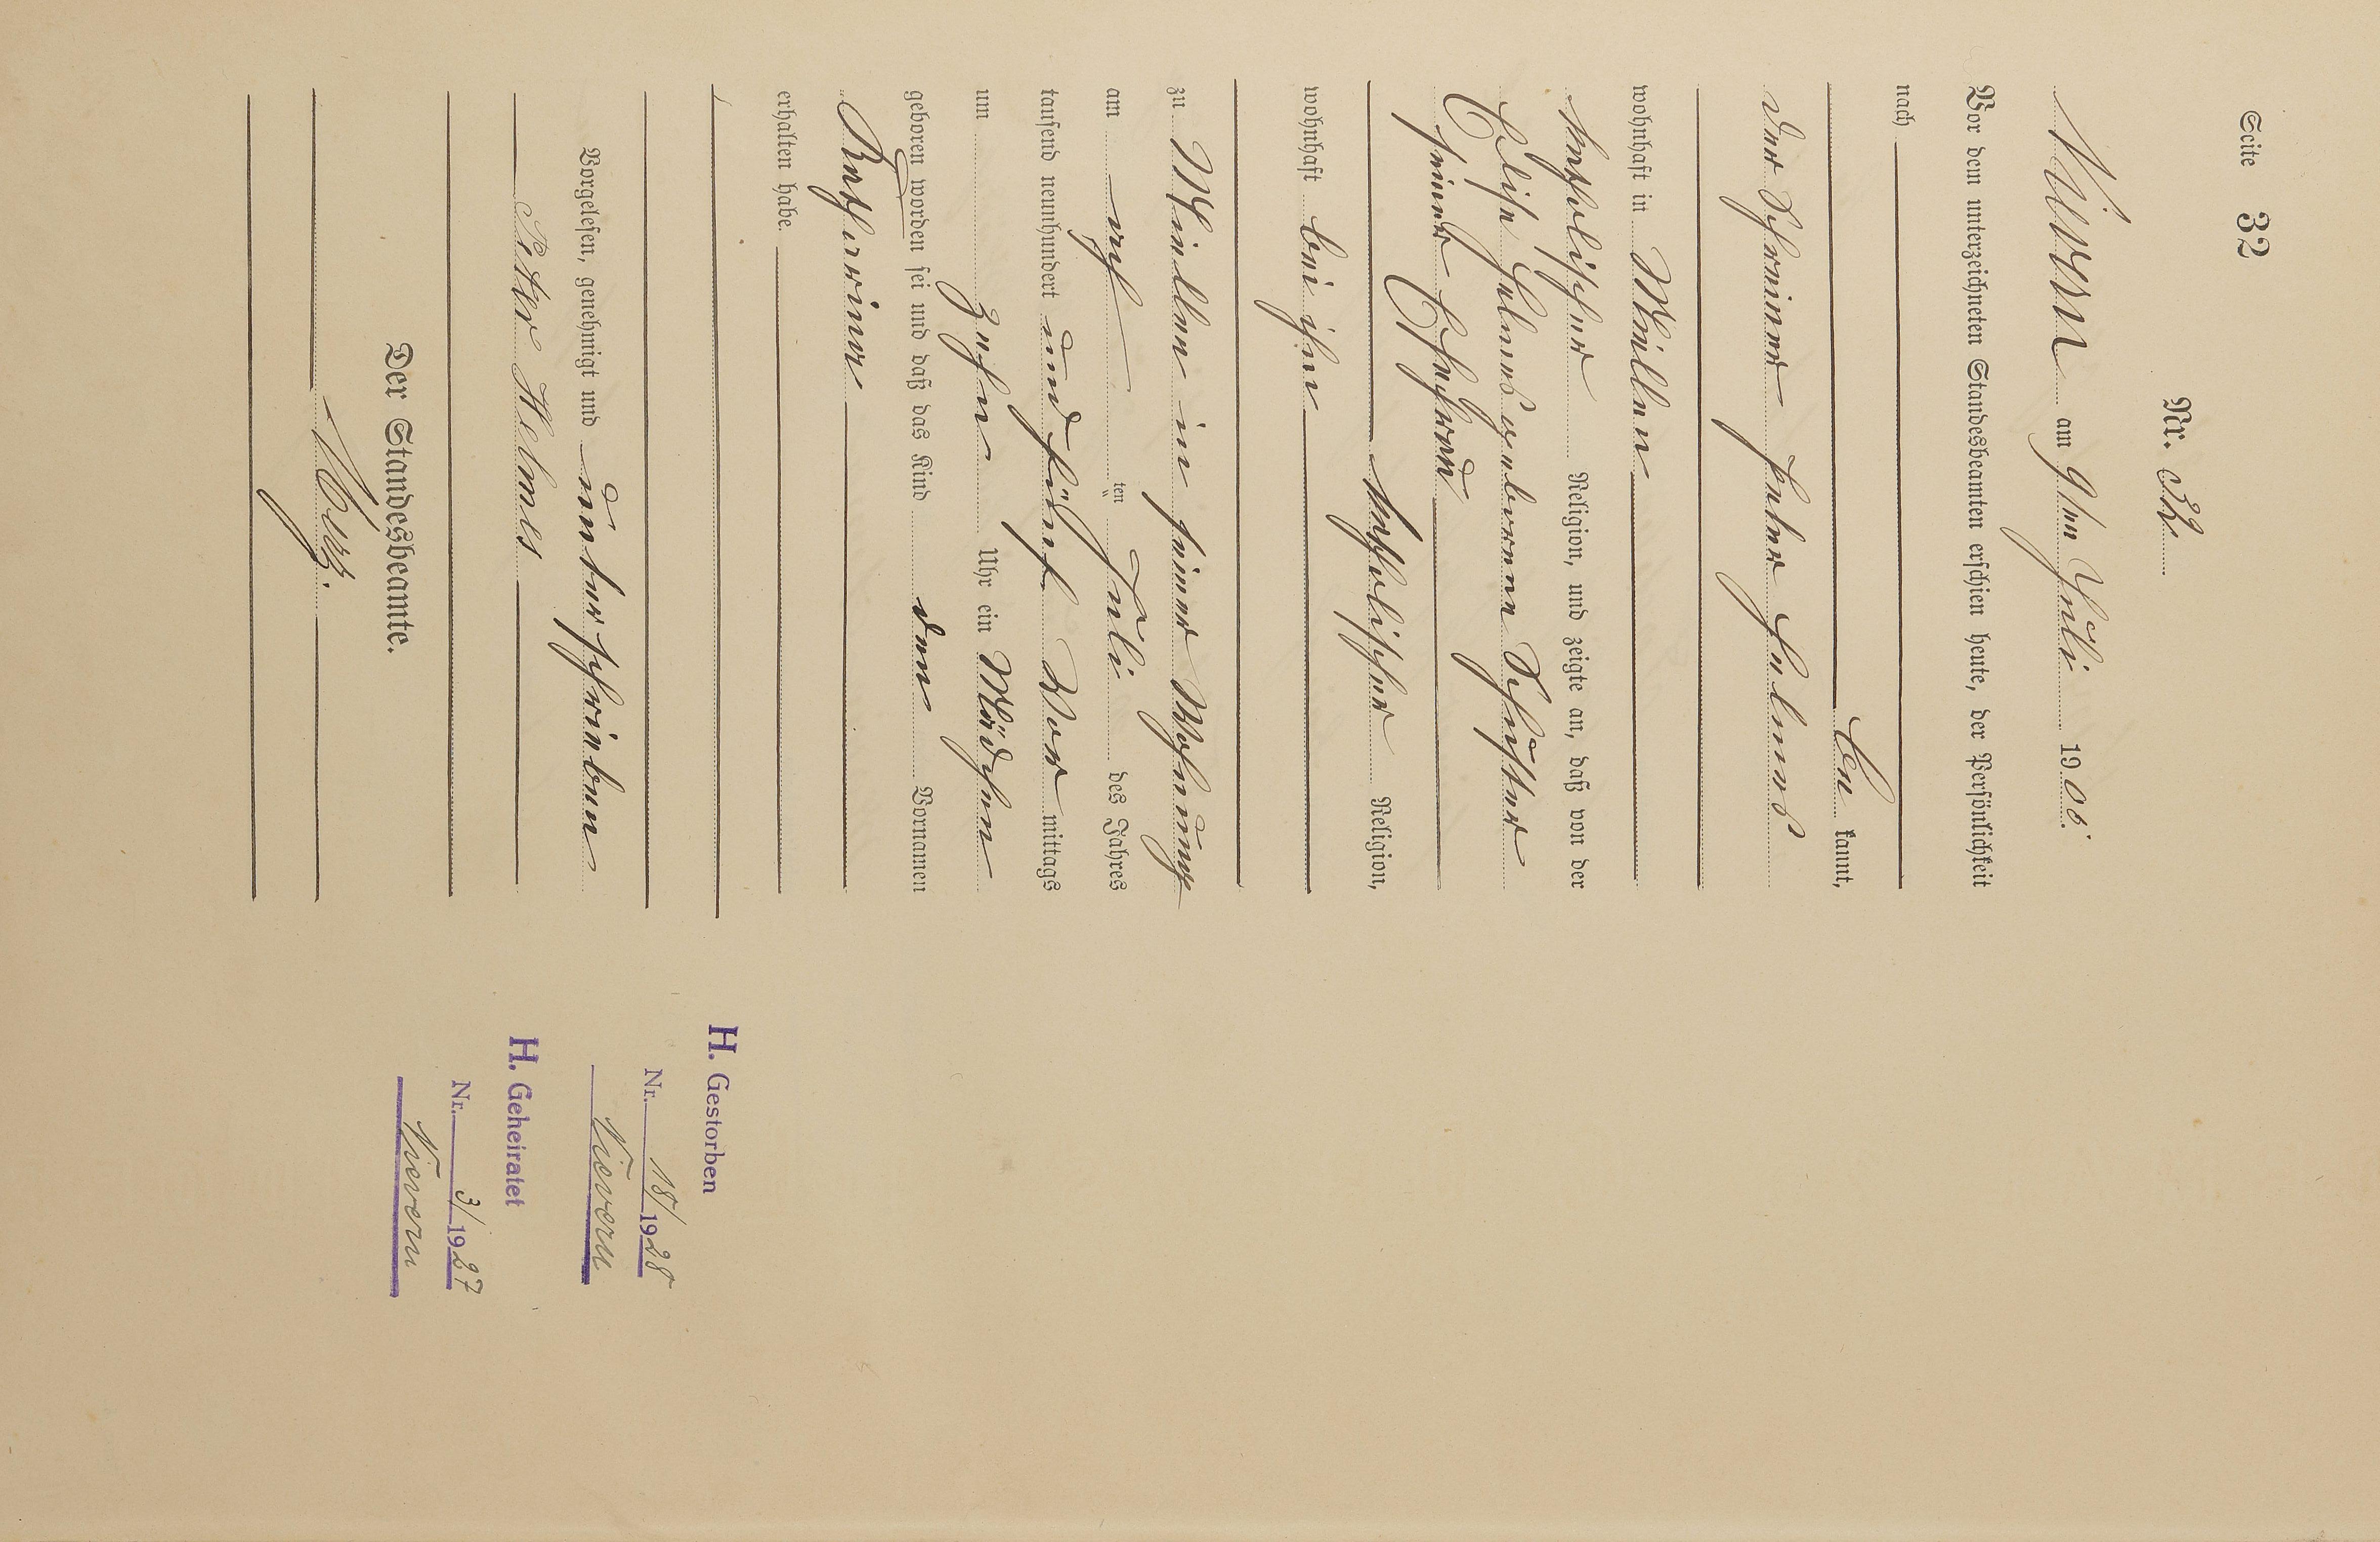 Seite 32
Nr. 32.
Nievern am 9ten Juli 1905.
Vor dem unterzeichneten Standesbeamten erschien heute, der Persönlichkeit
nach
be kannt,
der Schreiner Peter Helmes
wohnhaft in Miellen
katholischer Religion, und zeigte an, daß von der
Elise Helmes geborene Schuster
seiner Ehefrau
katholischer Religion,
wohnhaft bei ihm
zu Miellen in seiner Wohnung
am acht ten Juli des Jahres
tausend neunhundert und fünf Vor mittags
um zehn Uhr ein Mädchen
geboren worden sei und daß das Kind den Vornamen
Katharina
erhalten habe.
Vorgelesen, genehmigt und unterschrieben
Peter Helmes
Der Standesbeamte.
H. Gestorben
Nr. 18/1928
Nievern
H. Geheiratet
Nr. 3/1927
Nievern